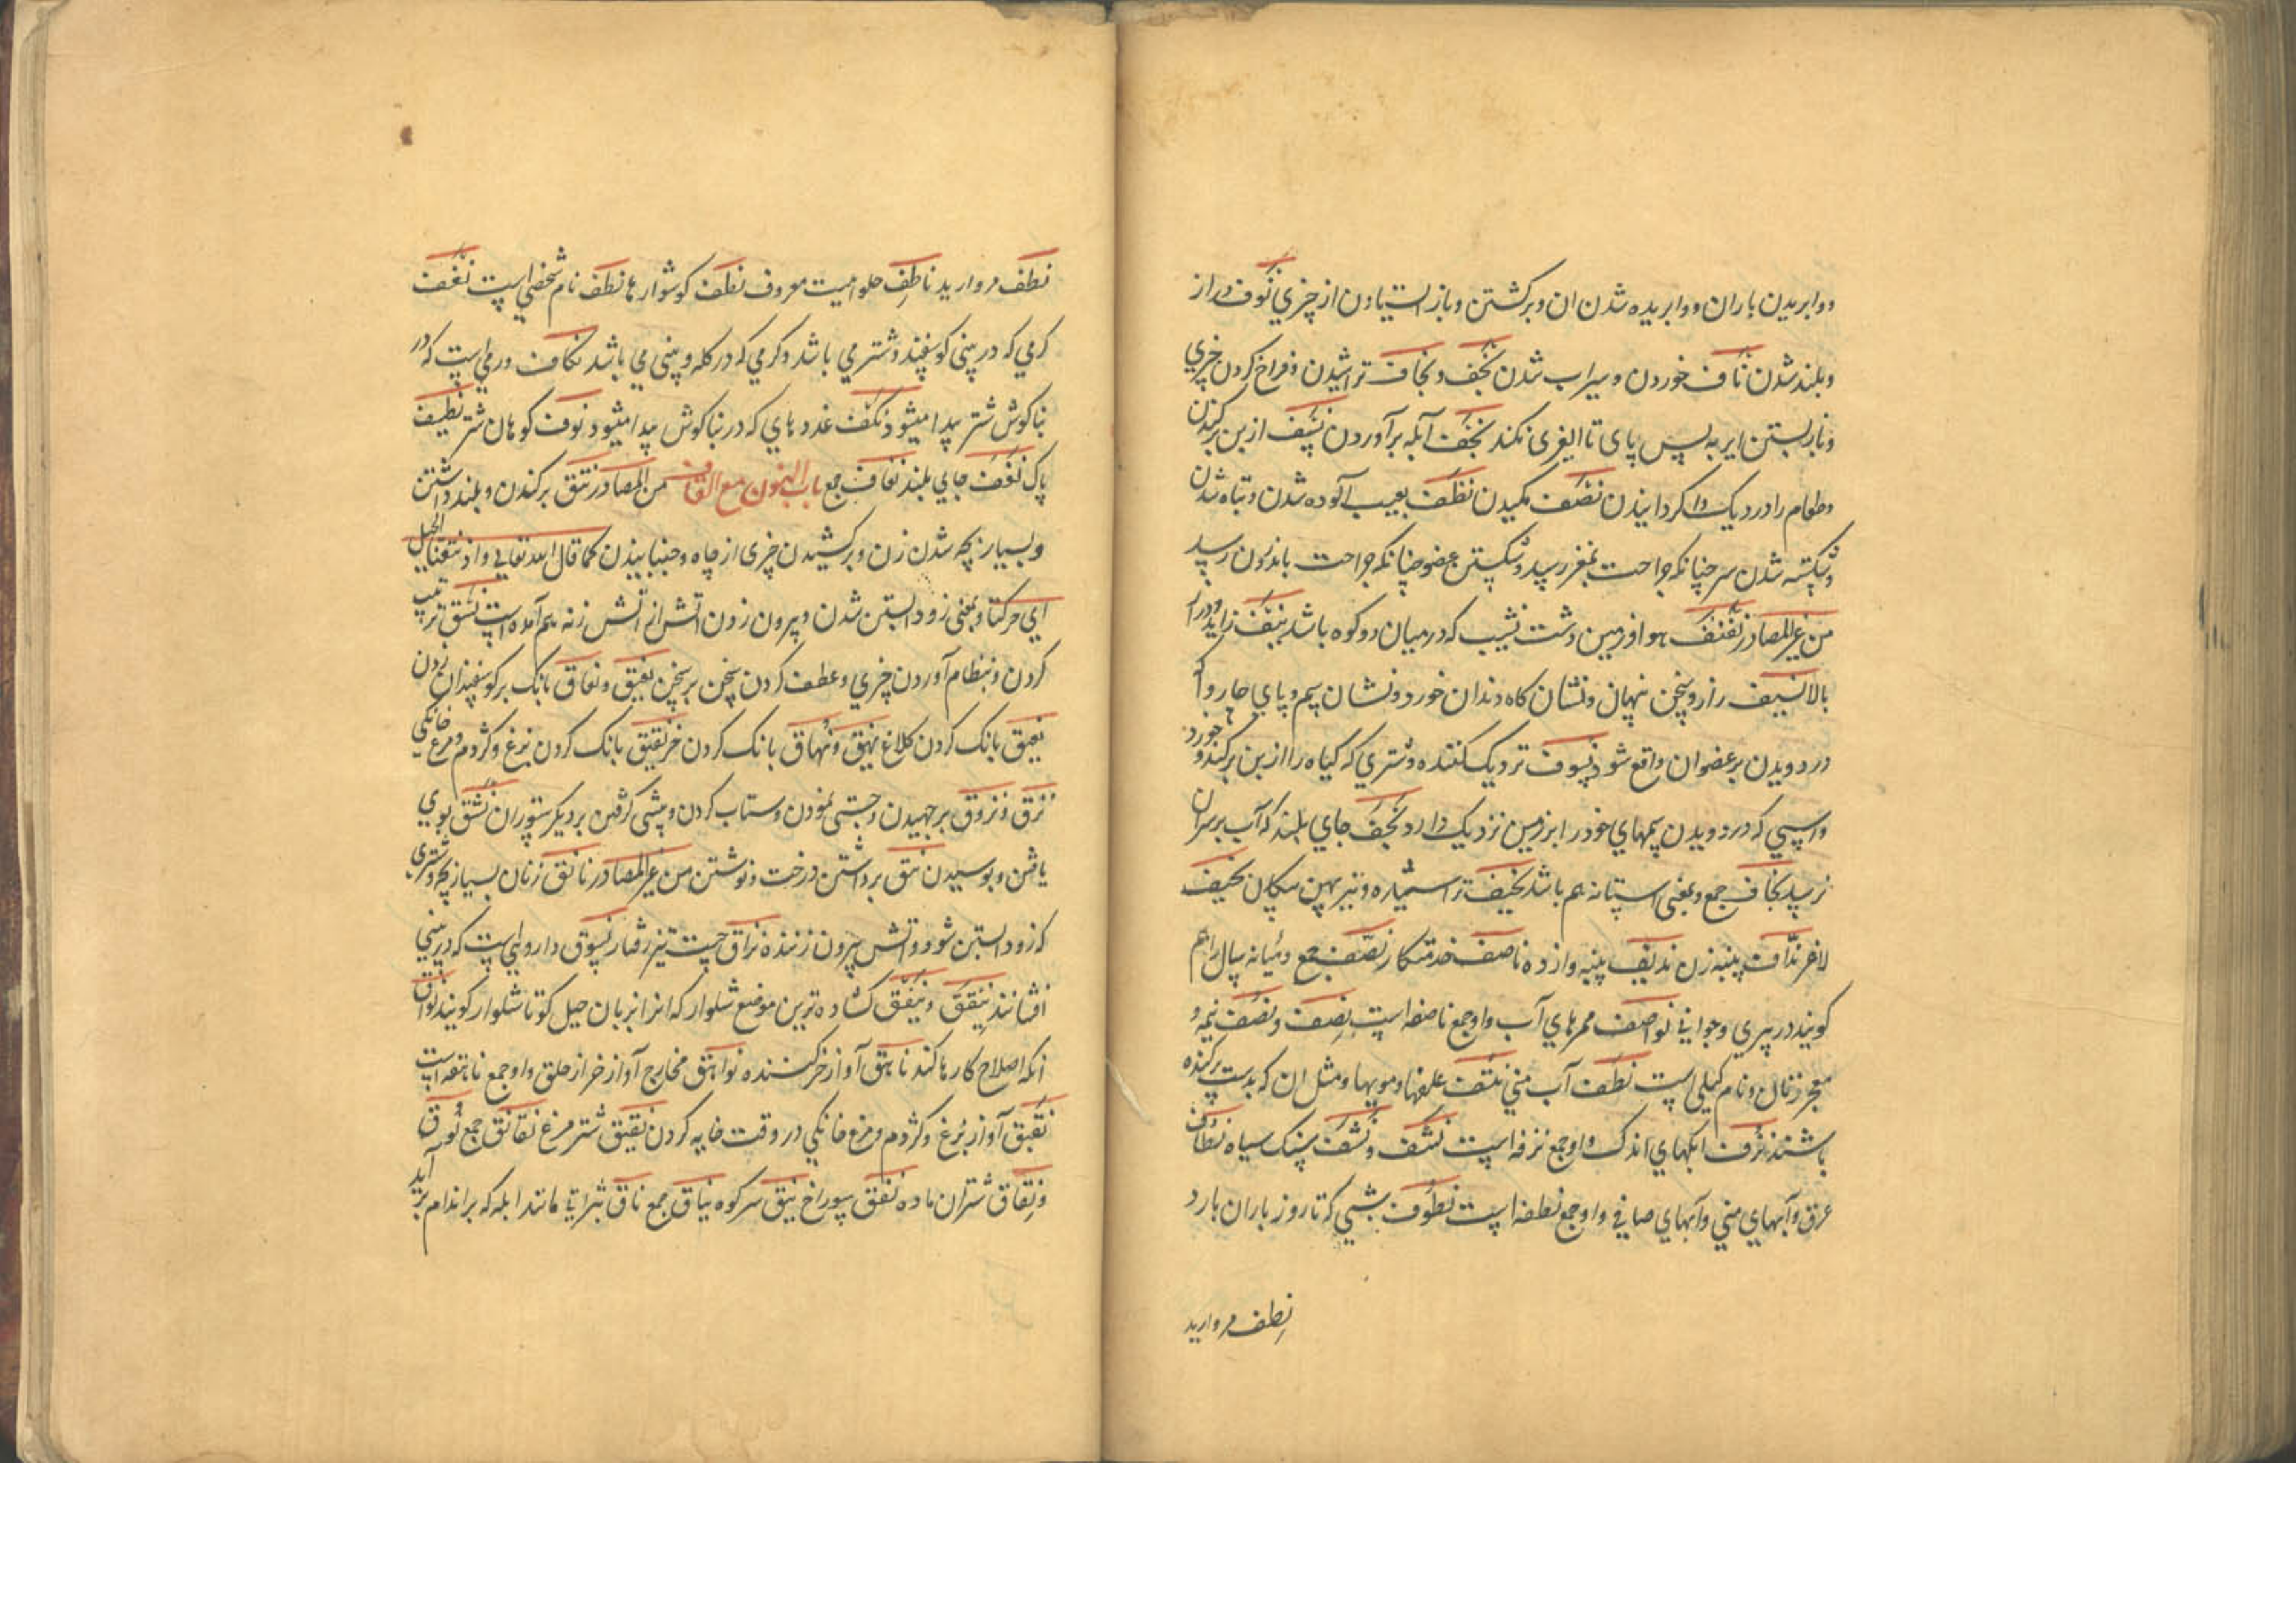 ووابریدن باران ووابریده شدن ان وبرکشتن وباز استیادن از چیزي نَوف دراز
وبلند شدن نأف خوردن وسیراب شدن نَجَف ونجاف تراشیدن وفراخ کردن چیزي
وباز بستن ایر به پس پای تا الیغری نکند نجف آبله برآوردن نسف از بن برکندن
وطعام را در دیک وا کردانیدن نضف مکیدن نظف بعیب آلوده شدن وتباه شدن
وشکسته شدن سر چنانکه جراحت بمغز رسد وشکستن عضو چنانکه جراحت باندرون رسد
من غیر المصادر نفنف هوا وزمین دشت نشیب که در میان دو کوه باشد نیف زاید
بالا نسیف راز وسخن نهان ونشان کاه دندان خورد ونشان سم وپاي چاروا که
در دویدن بر عضوان واقع شود نسوف نزدیک کننده وشتري که کیاه را از بن برکند وخورد
واسپي که در دویدن سمهاي خود را بزمین نزدیک دارد نجف جاي بلند که آب بر سر ان
نرسد نجاف جمع وبمعنی استانه هم باشد نجیف تراشیده وتیر پهن پیکان نحیف
لاغر ندّاف پنبه زن ندیف پنبه وازده ناصف خدمتکار نصف جمع ومیانه سال را هم
کویند در پیری وجواني نواصف ممرهاي آب واو جمع ناصفه است نِصف ونُصف نیمه و
معجر زنان ونام کیلی است نطف آب مني نتف علفها ومویها ومثل ان که بدست برکنده
باشند نزف ابکهاي اندک واو جمع نزفه است نشف ونشف سنک سیاه نطاف
عرق وآبهاي مني وآبهاي صافي واو جمع نطفه است نطوف شبي که تا روز باران بارد
نِطف مروارید
نطف مروارید ناطِف حلوائیست معروف نطف کوشوارها نطف نام شخصي است نغف
کرمي که در بیني کوسفند وشتر مي باشد وکرمي که در کله وبیني مي باشد نکاف ورمي است که در
بناکوش شتر پیدا میشود نکف غددهاي که در بناکوش پیدا میشود نوف کوهان شتر نظیف
پاک نعف جاي بلند نعاف جمع باب النون مع القاف من المصادر نتق برکندن وبلند داشتن
وبسیار بچه شدن زن وبرکشیدن چیزی از چاه وجنبانیدن کما قال الله تعالي واذ نتقنا الجبل
اي حرکنا وبمعنی زود ابستن شدن وبیرون زدن اتش از اتش زنه هم آمده است نسق ترتیب
کردن وبنظام آوردن چیزي وعطف کردن سخن بر سخن نعیق ونعاق بانک بر کوسفندان زدن
نغیق بانک کردن کلاغ نهیق ونُهاق بانک کردن خر نقیق بانک کردن بزغ وکژدم ومرغ خانکي
نزق ونزوق برجهیدن وجستی نمودن وستاب کردن وپیشی کرفتن بر دیکر ستوران نشق بوي
یافتن وبوسیدن نتق برداشتن درخت ونوشتن من غیر المصادر ناتق زنان بسیار بچه وشتری
که زود ابستن شود واتش بیرون زننده نزاق جست تیز رفتار نسوق داروئي است که در بیني
افشانند نیفق ونیفق کشاده ترین موضع شلوار که انرا بزبان جیل کوتا شلوار کویند نواق
انکه اصلاح کارها کند ناهق آواز خر کننده نواهق مخارج آواز خر از حلق واو جمع ناهقه است
نقیق آواز بزغ وکژدم ومرغ خانکي در وقت خایه کردن نقیق شتر مرغ نقانق جمع نُوق
ونِقاق شتران ماده نفق سوراخ نیق سر کوه نیاق جمع ناق بثراتي مانند ابله که بر اندام برآید